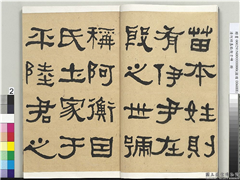 苗本姓則
有伊尹在
殷之世號
稱阿衡因
氏土家于
平陸君之